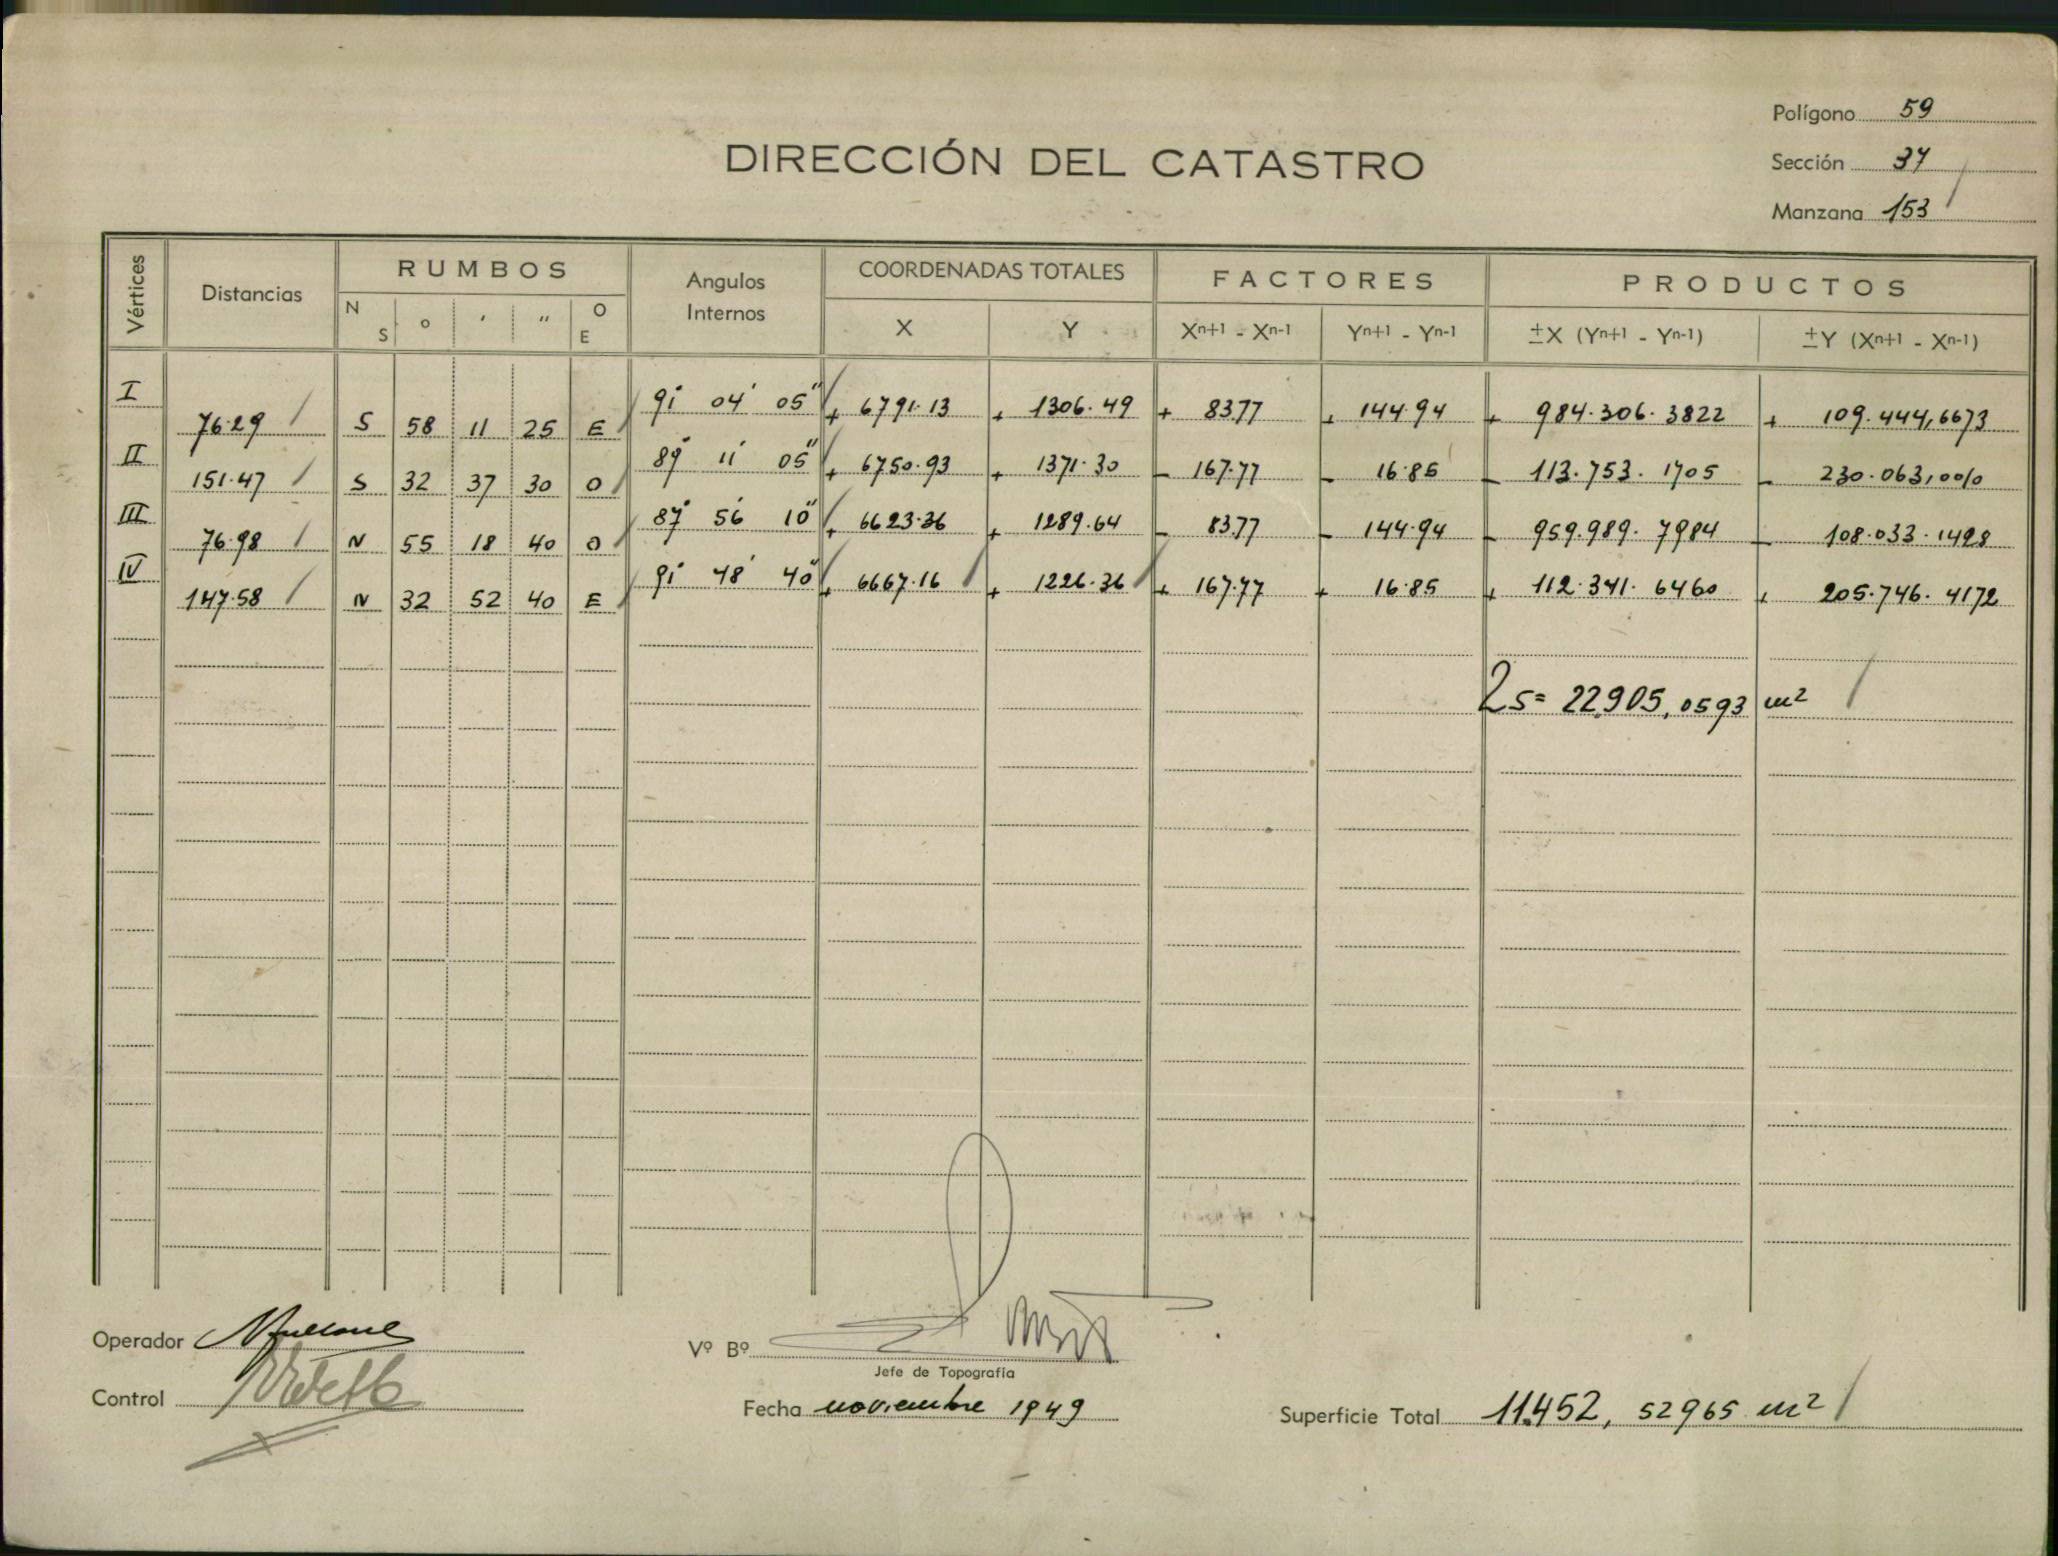 Polígono 59
Sección 37
Manzana 153
DIRECCIÓN DEL CATASTRO
Vértices Distancias RUMBOS Angulos Internos COORDENADAS TOTALES FACTORES PRODUCTOS
N S o ′ ″ O E X Y Xn+1 - Xn-1 Yn+1 - Yn-1 ±X (Yn+1 - Yn-1) ±Y (Xn+1 - Xn-1)
I 76.29 S 58 11 25 E 91° 04′ 05″ + 6791.13 + 1306.49 + 83.77 + 144.94 + 984.306.3822 + 109.444,6673
II 151.47 S 32 37 30 O 89° 11′ 05″ + 6750.93 + 1371.30 - 167.77 - 16.85 - 113.753.1705 - 230.063,0010
III 76.98 N 55 18 40 O 87° 56′ 10″ + 6623.36 + 1289.64 - 83.77 - 144.94 - 959.989.7984 - 108.033.1428
IV 147.58 N 32 52 40 E 91° 48′ 40″ + 6667.16 + 1226.36 + 167.77 + 16.85 + 112.341.6460 + 205.746.4172
2s= 22.905,0593 m²
Operador
Control
Vº Bº
Jefe de Topografía
Fecha noviembre 1949
Superficie Total 11.452, 52965 m²